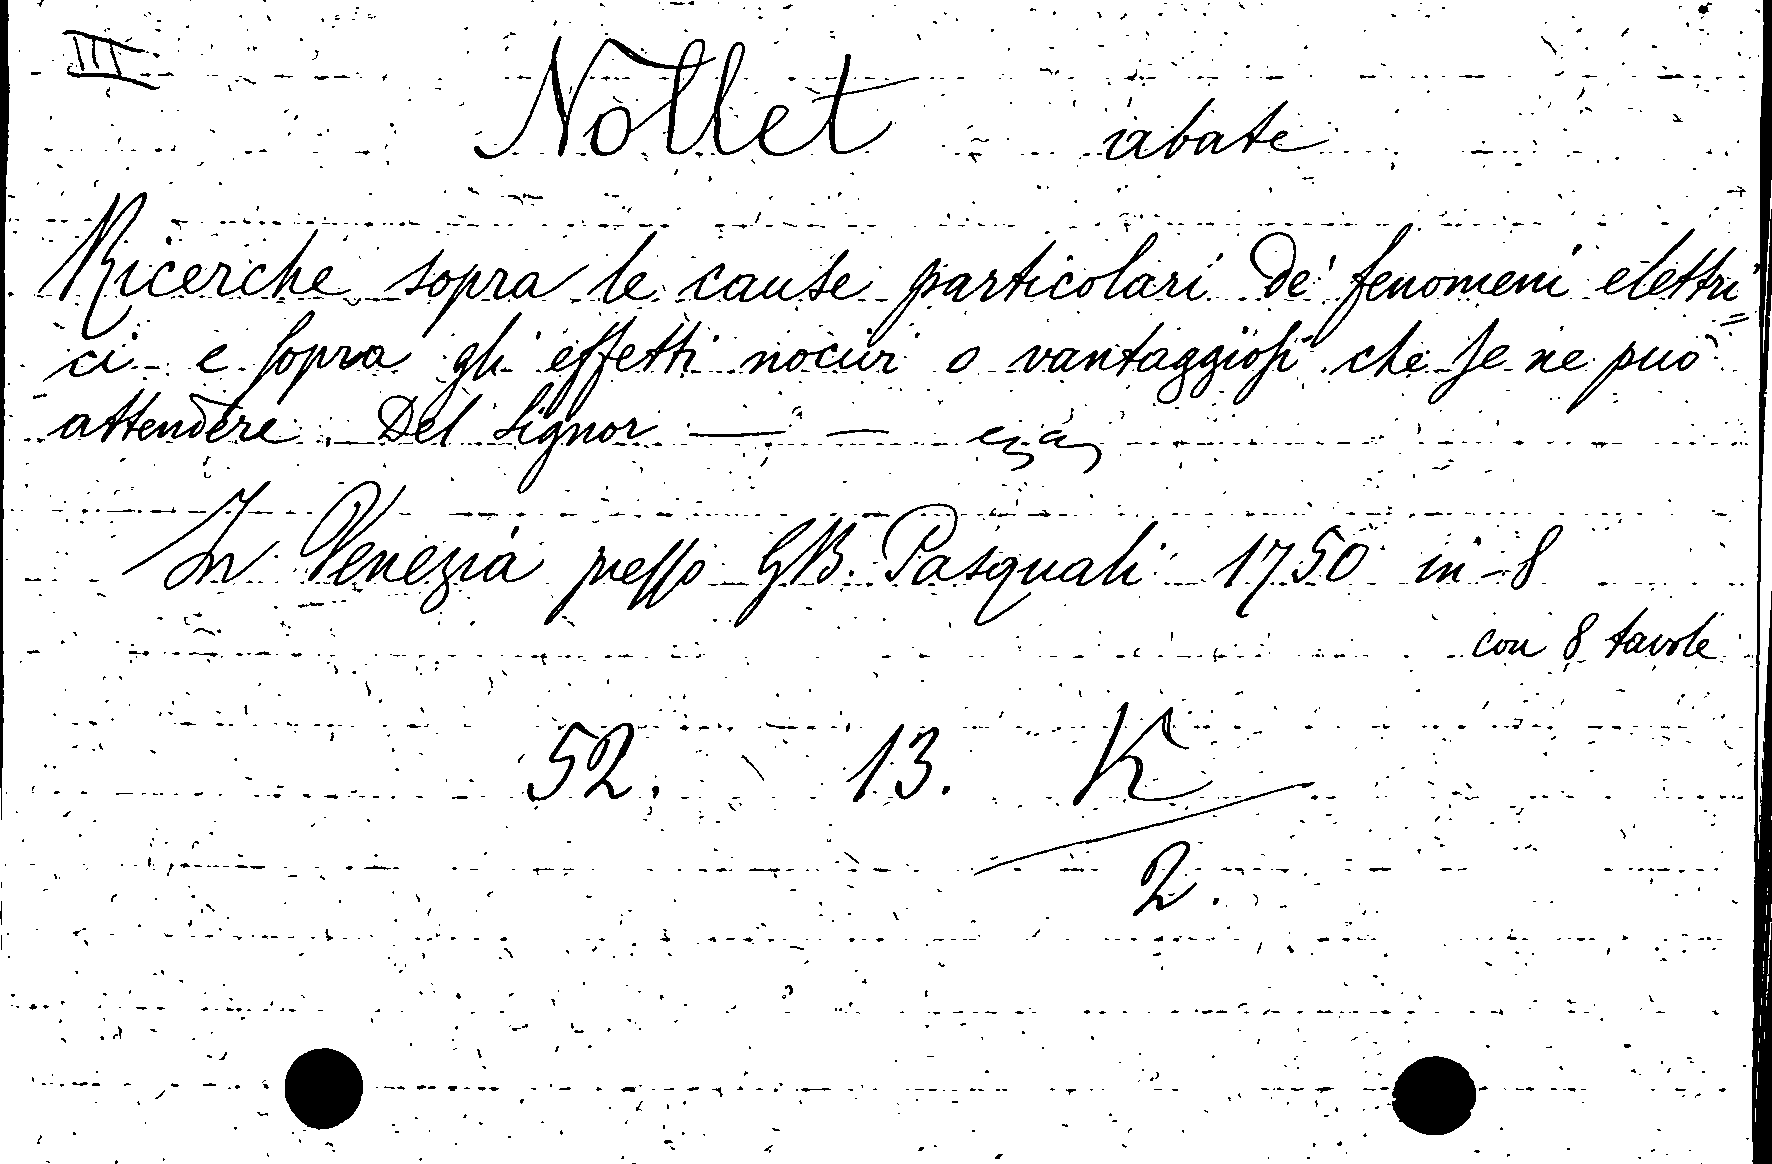 III
Nollet abate
Ricerche sopra le cause particolari de' fenomeni elettri=
ci e sopra gli effetti nocivi o vantaggiosi che se ne può
attendere. Del Signor — —
In Venezia presso GB. Pasquali 1750 in-8
con 8 tavole
52. 13. K
2.